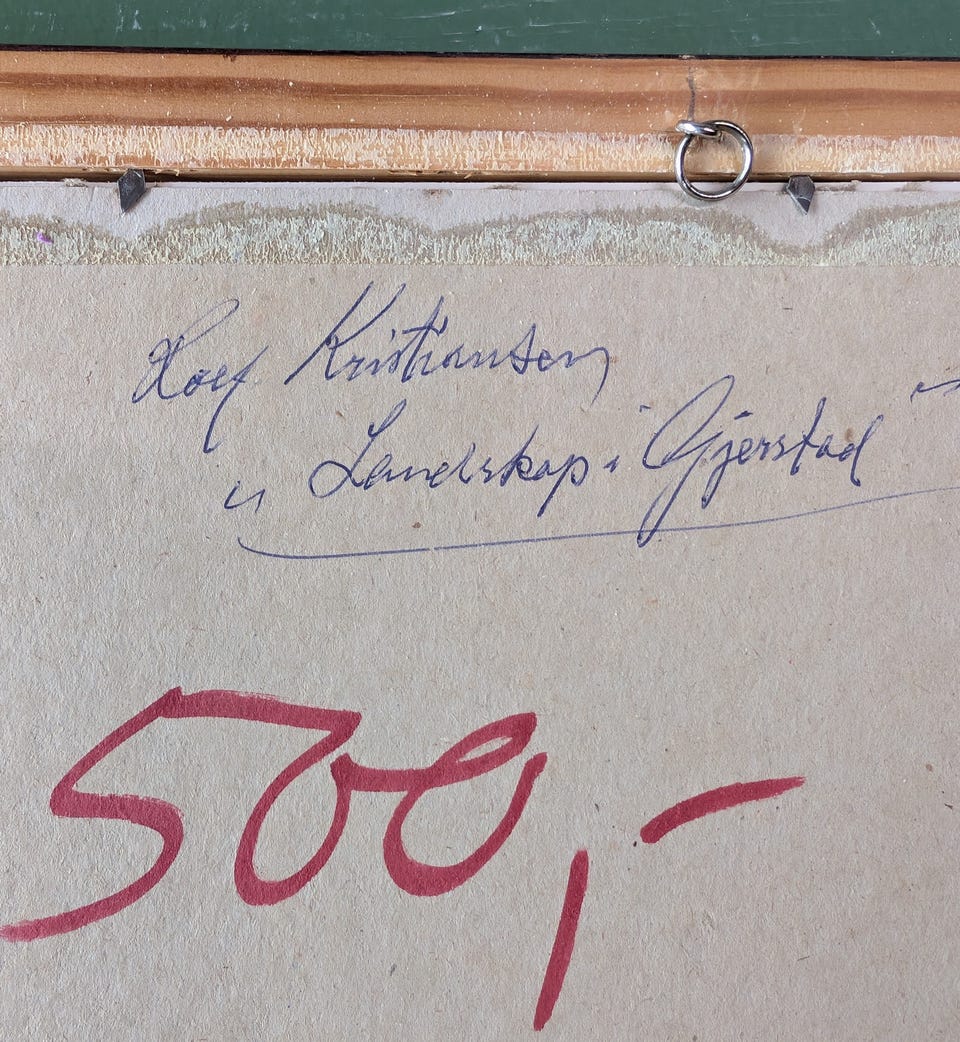 Roef Kristiansen
„ Landskap i Gjerstad”
500,-